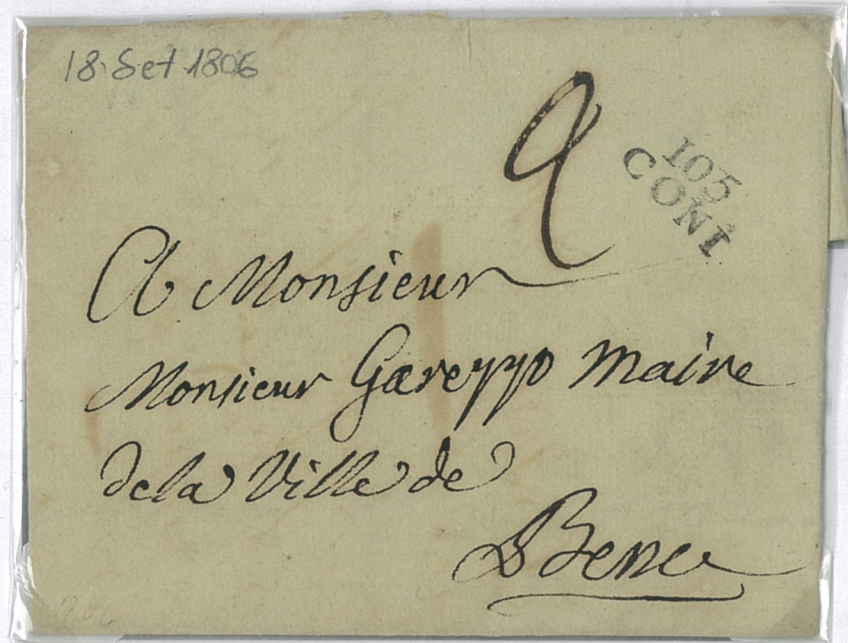 18 Set 1806
2
105
CONI
A Monsieur
Monsieur Garezzo Maire
de la Ville de
Bene